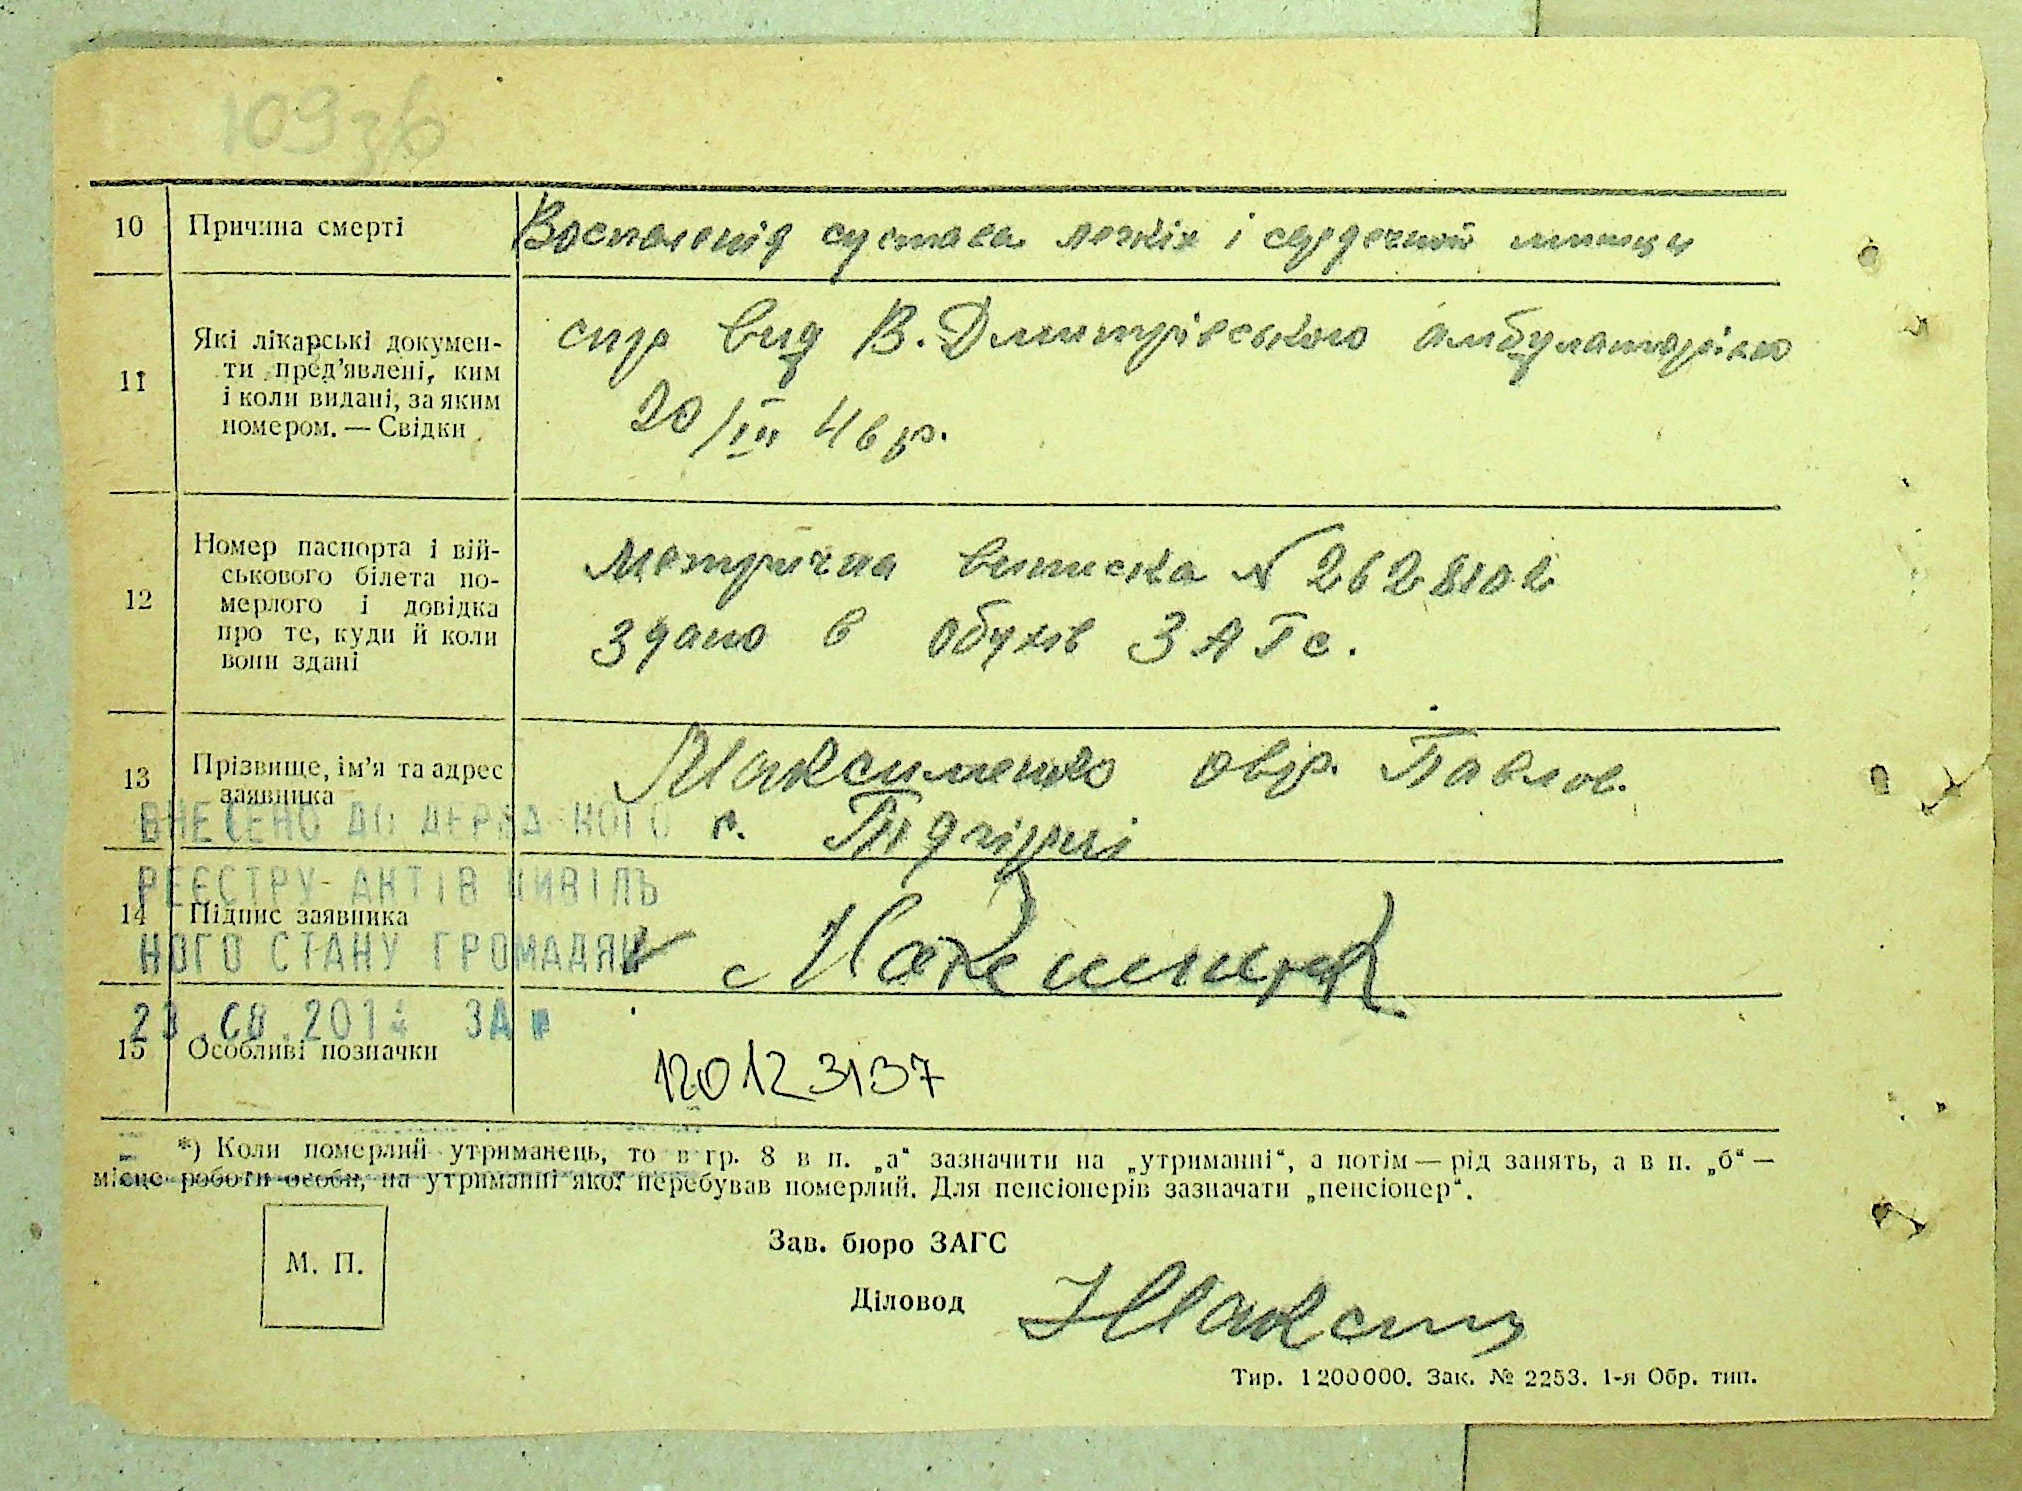 109зв
10 Причина смерті Воспаленія сустава легкіх і сердечной мишци
11 Які лікарські докумен-
ти пред'явлені, ким
і коли видані, за яким
номером. — Свідки
спр вид В. Дмитрівською амбулаторією
20/III 46 р.
12 Номер паспорта і вій-
ськового білета по-
мерлого і довідка
про те, куди й коли
вони здані
Метрична виписка №
здано в Обухів ЗАГс.
13 Прізвище, ім'я та адрес
заявника
Максименко Павлов.
с. Підгірці
ВНЕСЕНО ДО ДЕРЖАВНОГО
РЕЄСТРУ АКТІВ ЦИВІЛЬ
НОГО СТАНУ ГРОМАДЯН
14 Підпис заявника
2014 ЗА №
15 Особливі позначки 120123137
*) Коли померлий утриманець, то в гр. 8 в п. „а“ зазначити на „утриманні“, а потім — рід занять, а в п. „б“ —
місце роботи особи, на утриманні якої перебував померлий. Для пенсіонерів зазначати „пенсіонер“.
М. П.
Зав. бюро ЗАГС
Діловод
Тир. 1200000. Зак. № 2253. 1-я Обр. тип.